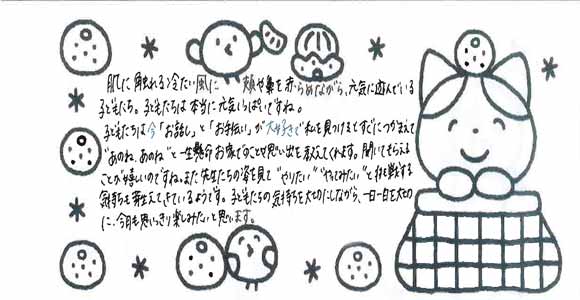 肌に触れる冷たい風に 頬や鼻を赤らめながら、元気に遊んでいる
子どもたち。子どもたちは本当に元気いっぱいですね。
子どもたちは今「お話し」と「お手伝い」が大好きで私を見つけるとすぐにつかまえて
"あのね、あのね"と一生懸命お家でのことや思い出を教えてくれます。聞いてもらえる
ことが嬉しいのですね。また先生たちの姿を見て"やりたい""やってみたい"と挑戦する
気持ちも芽生えてきているようです。子どもたちの気持ちを大切にしながら、一日一日を大切
に、今月も思いっきり楽しみたいと思います。